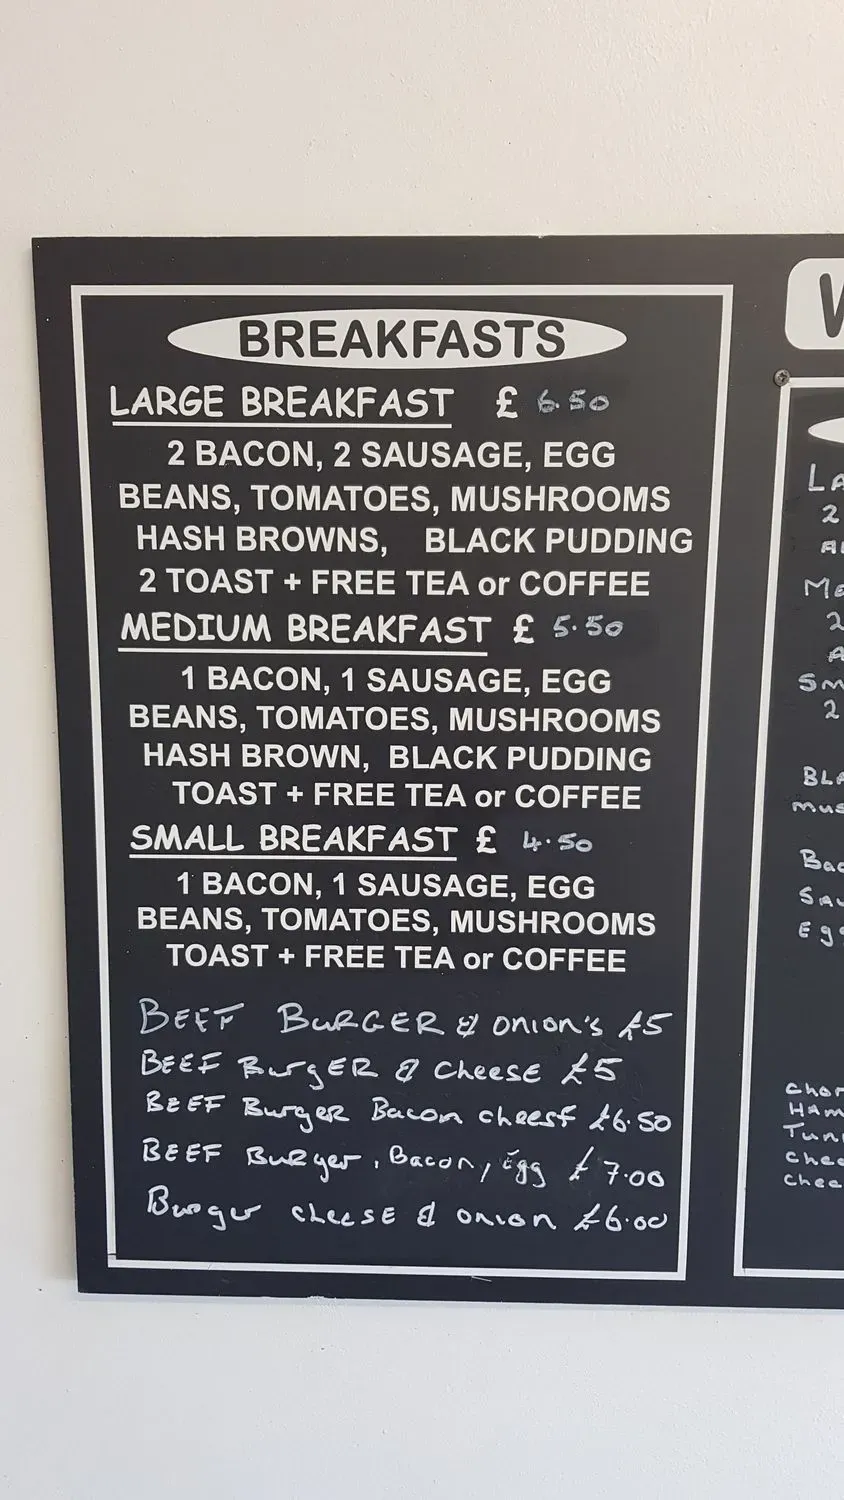 BREAKFASTS
LARGE BREAKFAST £ 6.50
2 BACON, 2 SAUSAGE, EGG
BEANS, TOMATOES, MUSHROOMS
HASH BROWNS, BLACK PUDDING
2 TOAST + FREE TEA or COFFEE
MEDIUM BREAKFAST £ 5.50
1 BACON, 1 SAUSAGE, EGG
BEANS, TOMATOES, MUSHROOMS
HASH BROWN, BLACK PUDDING
TOAST + FREE TEA or COFFEE
SMALL BREAKFAST £ 4.50
1 BACON, 1 SAUSAGE, EGG
BEANS, TOMATOES, MUSHROOMS
TOAST + FREE TEA or COFFEE
BEEF BURGER & ONION'S £5
BEEF BurgER & CheeSE £5
BEEF Burger Bacon cheese £6.50
BEEF Burger, Bacon, Egg £7.00
Burger cheese & onion £6.00
2
2
2